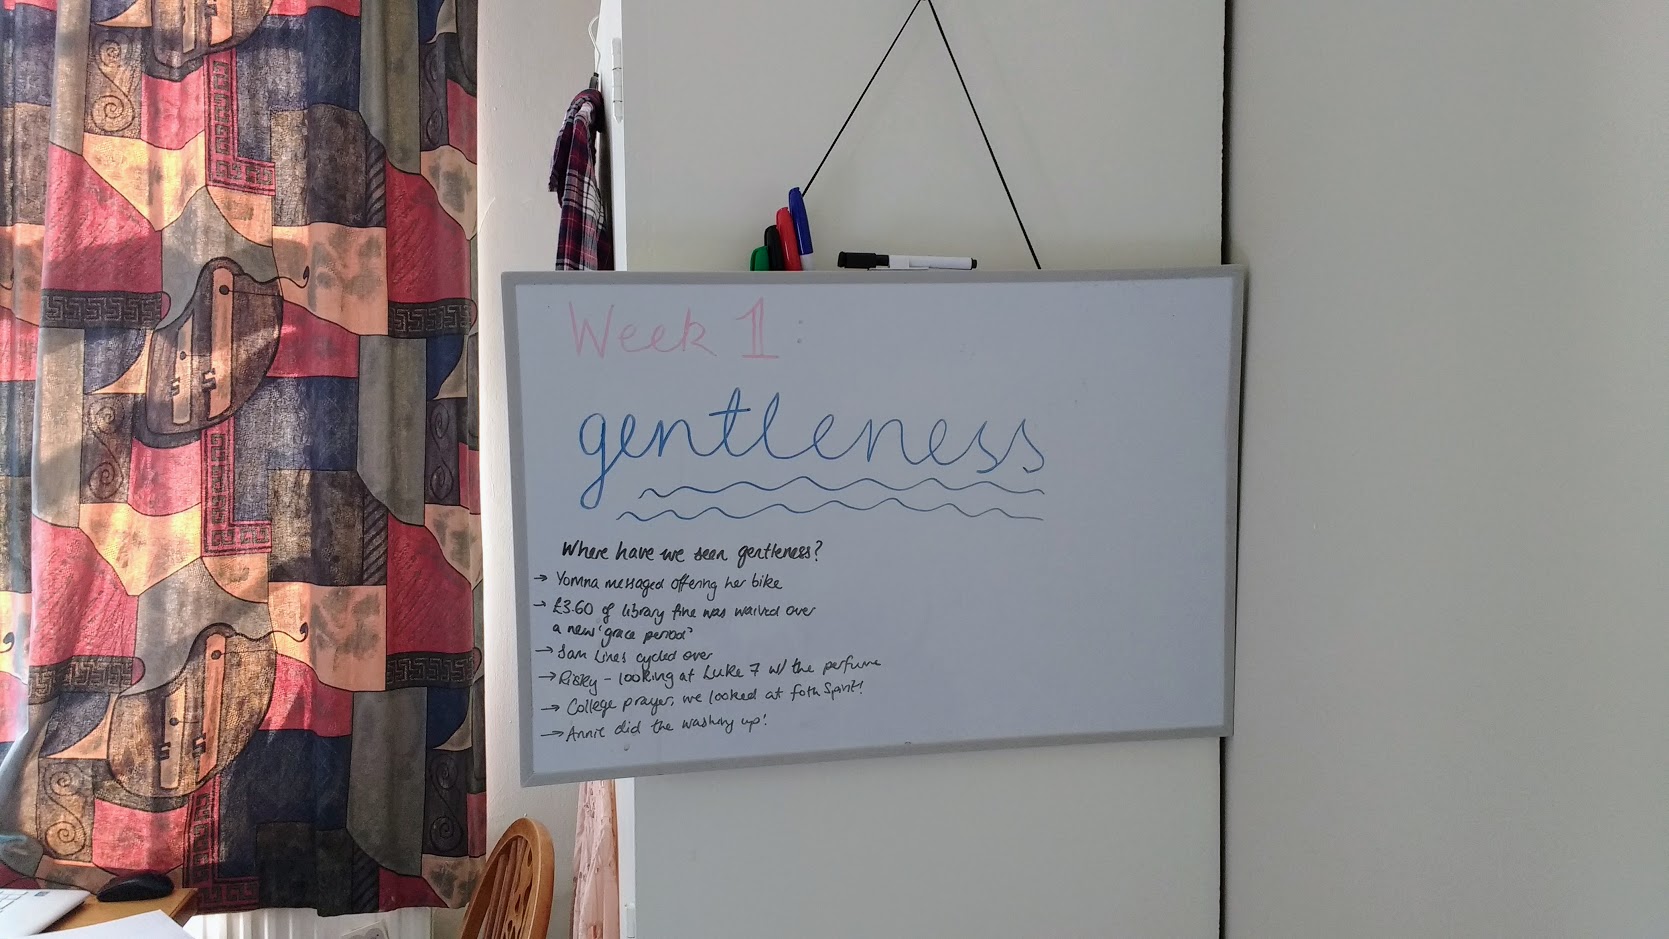 Week 1:
gentleness
Where have we seen gentleness?
→ Yomna messaged offering her bike
→ £3.60 of library fine was waived over
a new 'grace period'
→ Sam Lines cycled over
→ Risky - looking at Luke 7 w/ the perfume
→ College prayer, we looked at foth Spirit!
→ Annie did the washing up!